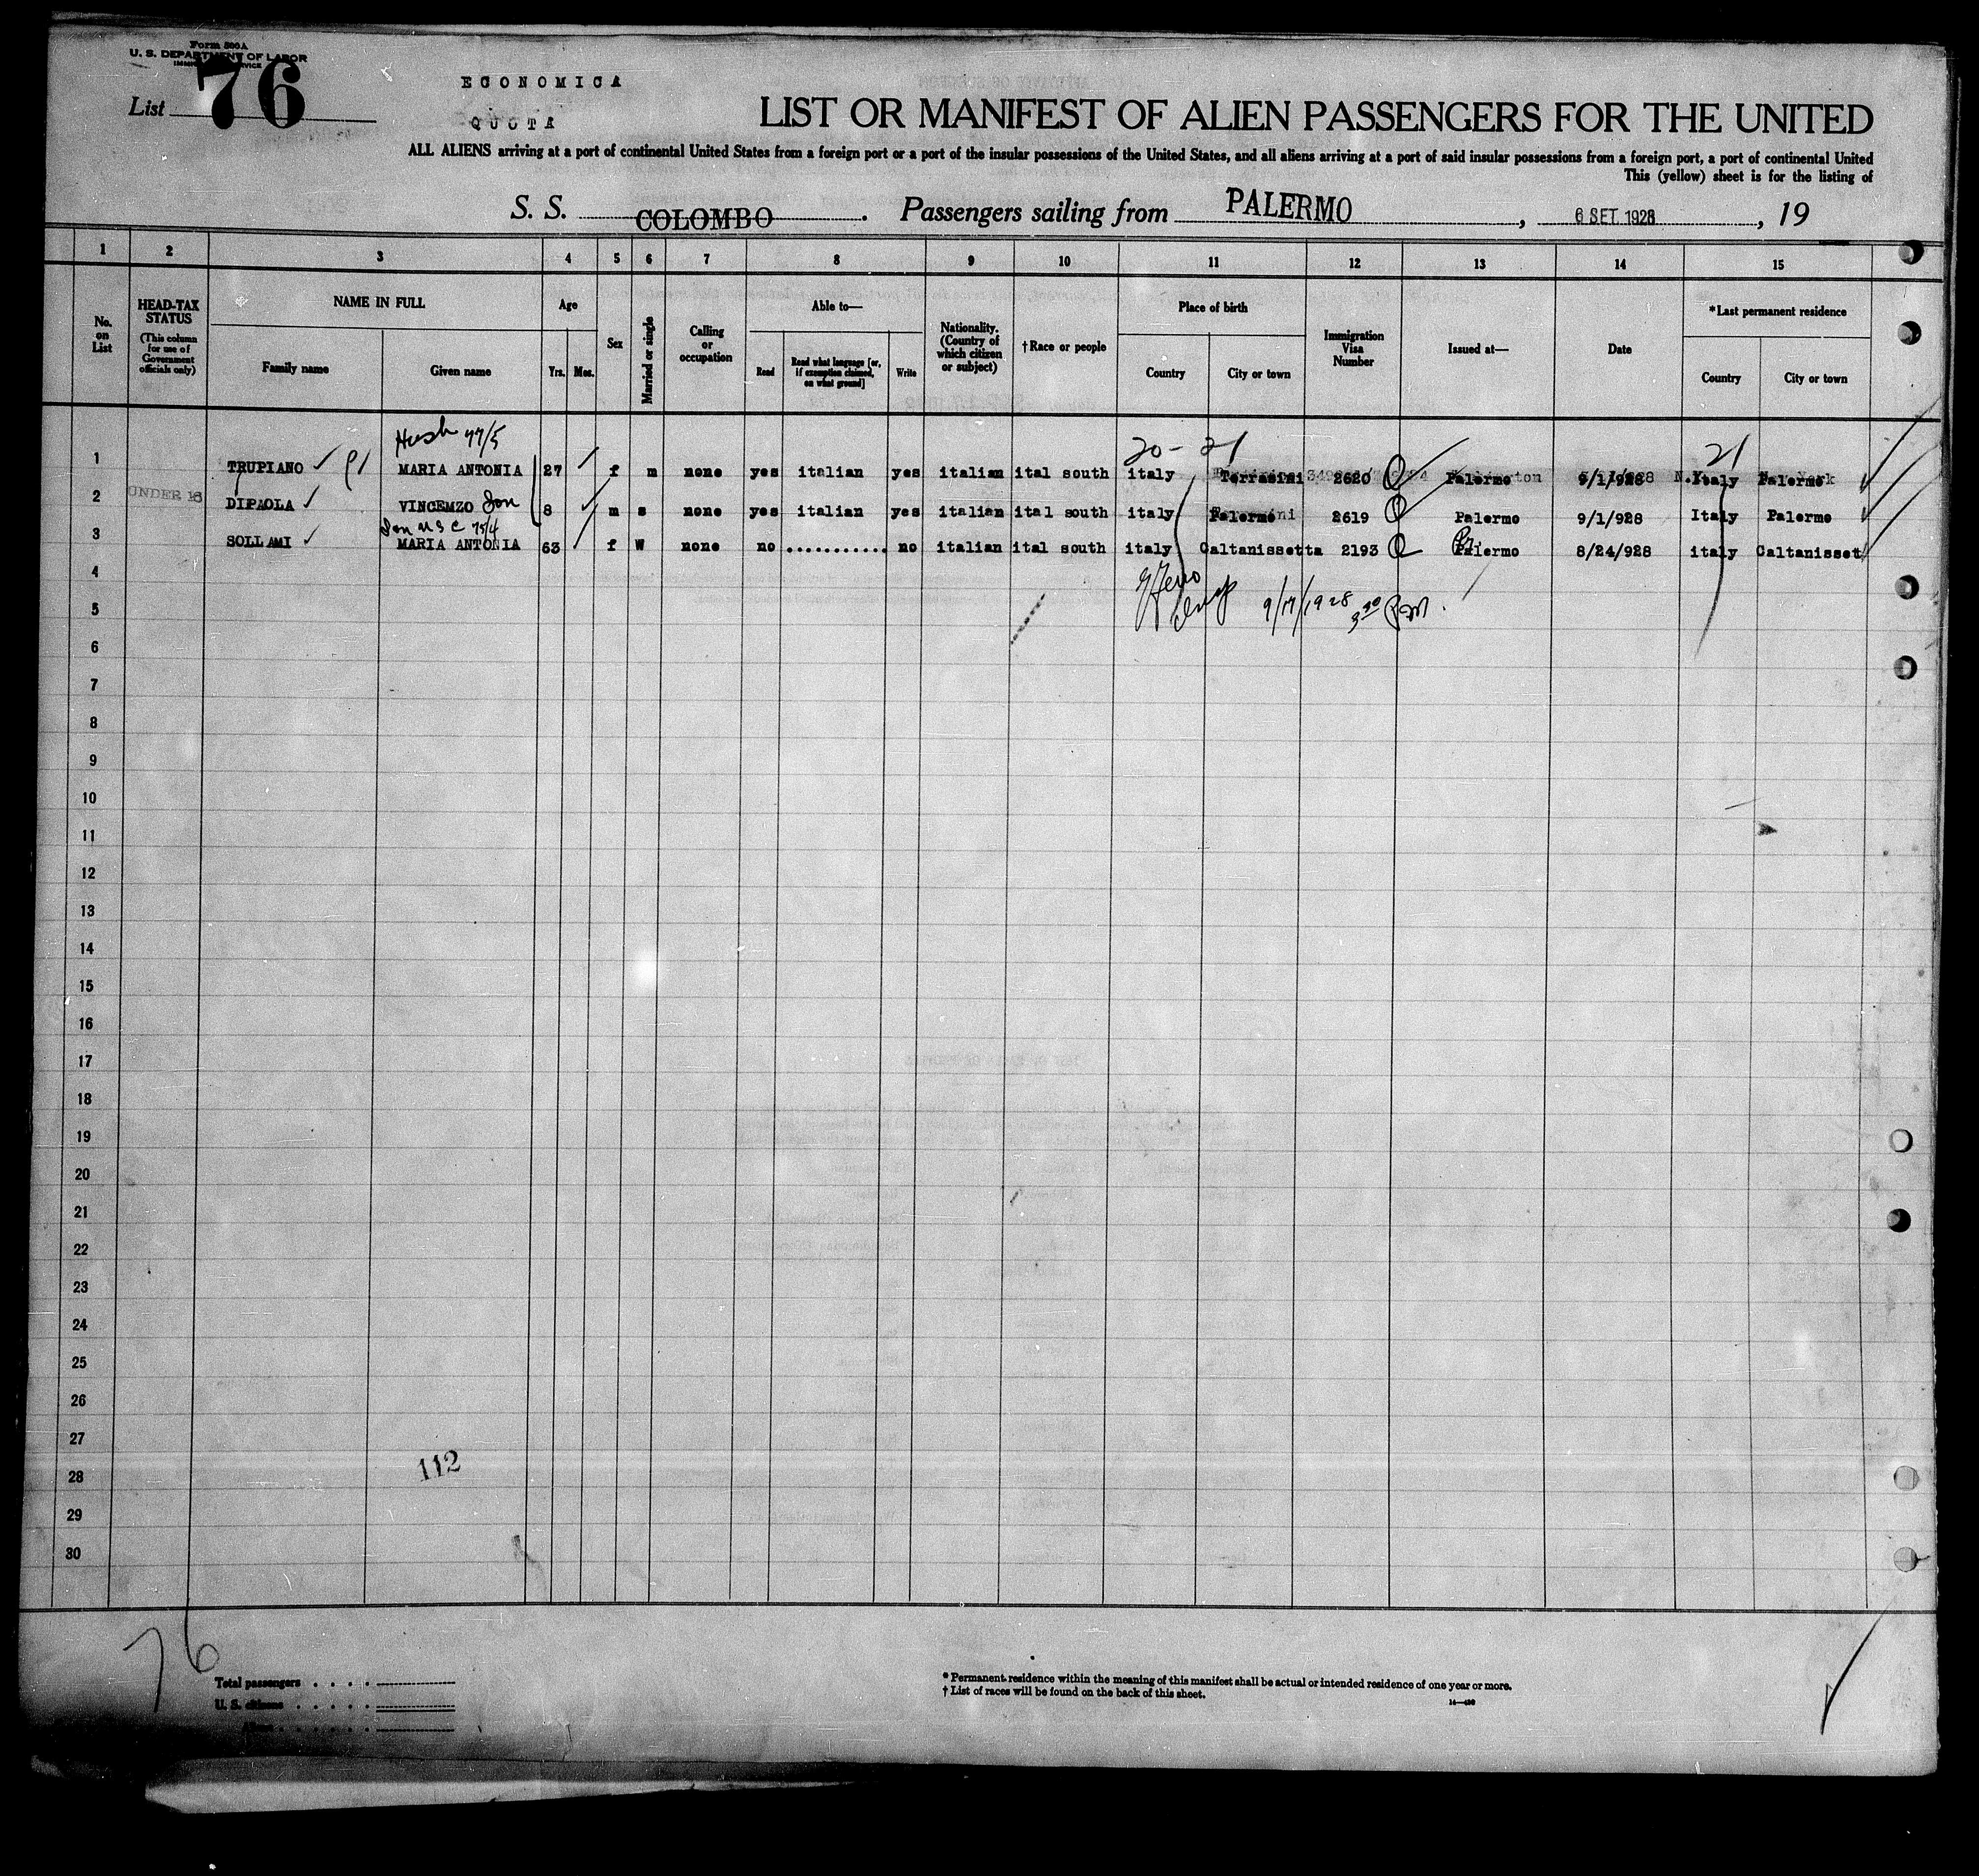 Form 500A
U. S. DEPARTMENT OF LABOR
List 76
ECONOMICA
QUOTA
LIST OR MANIFEST OF ALIEN PASSENGERS FOR THE UNITED
ALL ALIENS arriving at a port of continental United States from a foreign port or a port of the insular possessions of the United States, and all aliens arriving at a port of said insular possessions from a foreign port, a port of continental United
This (yellow) sheet is for the listing of
S. S. COLOMBO. Passengers sailing from PALERMO, 6 SET. 1928, 19
1 2 3 4 5 6 7 8 9 10 11 12 13 14 15
No. on List
HEAD-TAX STATUS (This column for use of Government officials only)
NAME IN FULL
Family name Given name
Age
Yrs. Mos.
Sex
Married or single
Calling or occupation
Able to—
Read Read what language [or, if exemption claimed, on what ground] Write
Nationality. (Country of which citizen or subject)
†Race or people
Place of birth
Country City or town
Immigration Visa Number
Issued at—
Date
*Last permanent residence
Country City or town
Husb 77/5 20- 21 21
1 TRUPIANO MARIA ANTONIA 27 f m none yes italian yes italian ital south italy Terrasini 2620 Palermo 9/1/928 Italy Palermo
2 UNDER 16 DIPAOLA VINCEMZO Son 8 m s none yes italian yes italian ital south italy Palermo 2619 Palermo 9/1/928 Italy Palermo
Son U S C 75/4
3 SOLLAMI MARIA ANTONIA 63 f W none no ............ no italian ital south italy Caltanissetta 2193 Palermo 8/24/928 italy Caltanisset
4
9/17/1928 3 30 PM.
5
6
7
8
9
10
11
12
13
14
15
16
17
18
19
20
21
22
23
24
25
26
27
112
28
29
30
76
Total passengers . . . .
U. S. citizens . . . . .
Aliens . . . . . .
* Permanent residence within the meaning of this manifest shall be actual or intended residence of one year or more.
† List of races will be found on the back of this sheet.